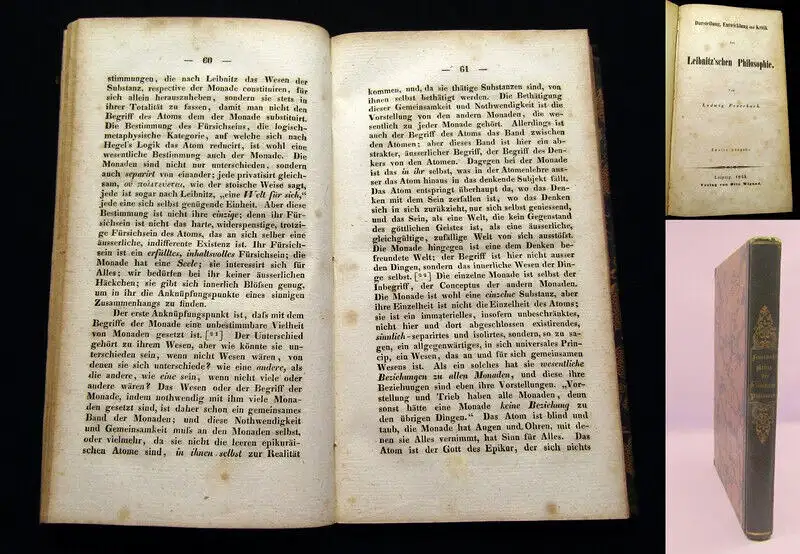 — 60 —
stimmungen, die nach Leibnitz das Wesen der
Substanz, respective der Monade constituiren, für
sich allein herauszuheben, sondern sie stets in
ihrer Totalität zu fassen, damit man nicht den
Begriff des Atoms dem der Monade substituirt.
Die Bestimmung des Fürsichseins, die logisch-
metaphysische Kategorie, auf welche sich nach
Hegel's Logik das Atom reducirt, ist wohl eine
wesentliche Bestimmung auch der Monade. Die
Monaden sind nicht nur unterschieden, sondern
auch separirt von einander; jede privatisirt gleich-
sam, wie der stoische Weise sagt,
jede ist sogar nach Leibnitz, „eine Welt für sich,"
jede eine sich selbst genügende Einheit. Aber diese
Bestimmung ist nicht ihre einzige; denn ihr Für-
sichsein ist nicht das harte, widerspenstige, trotzi-
ge Fürsichsein des Atoms, das an sich selber eine
äusserliche, indifferente Existenz ist. Ihr Fürsich-
sein ist ein erfülltes, inhaltsvolles Fürsichsein; die
Monade hat eine Seele; sie interessirt sich für
Alles; wir bedürfen bei ihr keiner äusserlichen
Häckchen; sie gibt sich innerlich Blöfsen genug,
um in ihr die Anknüpfungspunkte eines sinnigen
Zusammenhangs zu finden.
Der erste Anknüpfungspunkt ist, dafs mit dem
Begriffe der Monade eine unbestimmbare Vielheit
von Monaden gesetzt ist. Der Unterschied
gehört zu ihrem Wesen, aber wie könnte sie un-
terschieden sein, wenn nicht Wesen wären, von
denen sie sich unterschiede? wie eine andere, als
die andere, wie eine sein, wenn nicht viele oder
andere wären? Das Wesen oder der Begriff der
Monade, indem nothwendig mit ihm viele Mona-
den gesetzt sind, ist daher schon ein gemeinsames
Band der Monaden; und diese Nothwendigkeit
und Gemeinsamkeit mufs an den Monaden selbst,
oder vielmehr, da sie nicht die leeren epikuräi-
schen Atome sind, in ihnen selbst zur Realität
— 61 —
kommen, und, da sie thätige Substanzen sind, von
ihnen selbst bethätigt werden. Die Bethätigung
dieser Gemeinsamkeit und Nothwendigkeit ist die
Vorstellung von den andern Monaden, die we-
sentlich zu jeder Monade gehört. Allerdings ist
auch der Begriff des Atoms das Band zwischen
den Atomen; aber dieses Band ist hier ein ab-
strakter, äusserlicher Begriff, der Begriff des Den-
kers von den Atomen. Dagegen bei der Monade
ist das in ihr selbst, was in der Atomenlehre aus-
ser das Atom hinaus in das denkende Subjekt fällt.
Das Atom entspringt überhaupt da, wo das Den-
ken mit dem Sein zerfallen ist, wo das Denken
sich in sich zurükzieht, nur sich selbst geniessend,
und das Sein, als eine Welt, die kein Gegenstand
des göttlichen Geistes ist, als eine äusserliche,
gleichgültige, zufällige Welt von sich ausstöfst.
Die Monade hingegen ist eine dem Denken be-
freundete Welt; der Begriff ist hier nicht ausser
den Dingen, sondern das innerliche Wesen der Din-
ge selbst. Die einzelne Monade ist selbst der
Inbegriff, der Conceptus der andern Monaden.
Die Monade ist wohl eine einzelne Substanz, aber
ihre Einzelheit ist nicht die Einzelheit des Atoms;
sie ist ein immaterielles, insofern unbeschränktes,
nicht hier und dort abgeschlossen existirendes,
sinnlich-separirtes und isolirtes, sondern, so zu sa-
gen, ein allgegenwärtiges, in sich universales Prin-
cip, ein Wesen, das an und für sich gemeinsamen
Wesens ist. Als ein solches hat sie wesentliche
Beziehungen zu allen Monaden, und diese ihre
Beziehungen sind eben ihre Vorstellungen. „Vor-
stellung und Trieb haben alle Monaden, denn
sonst hätte eine Monade keine Beziehung zu
den übrigen Dingen." Das Atom ist blind und
taub, die Monade hat Augen und Ohren, mit de-
nen sie Alles vernimmt, hat Sinn für Alles. Das
Atom ist der Gott des Epikur, der sich nichts
Darstellung, Entwicklung und Kritik
der
Leibnitz'schen Philosophie.
von
Ludwig Feuerbach.
Zweite Ausgabe.
Leipzig, 1844.
Verlag von Otto Wigand.